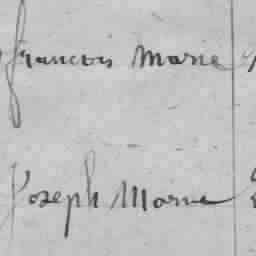 francois Marie
Joseph Marie